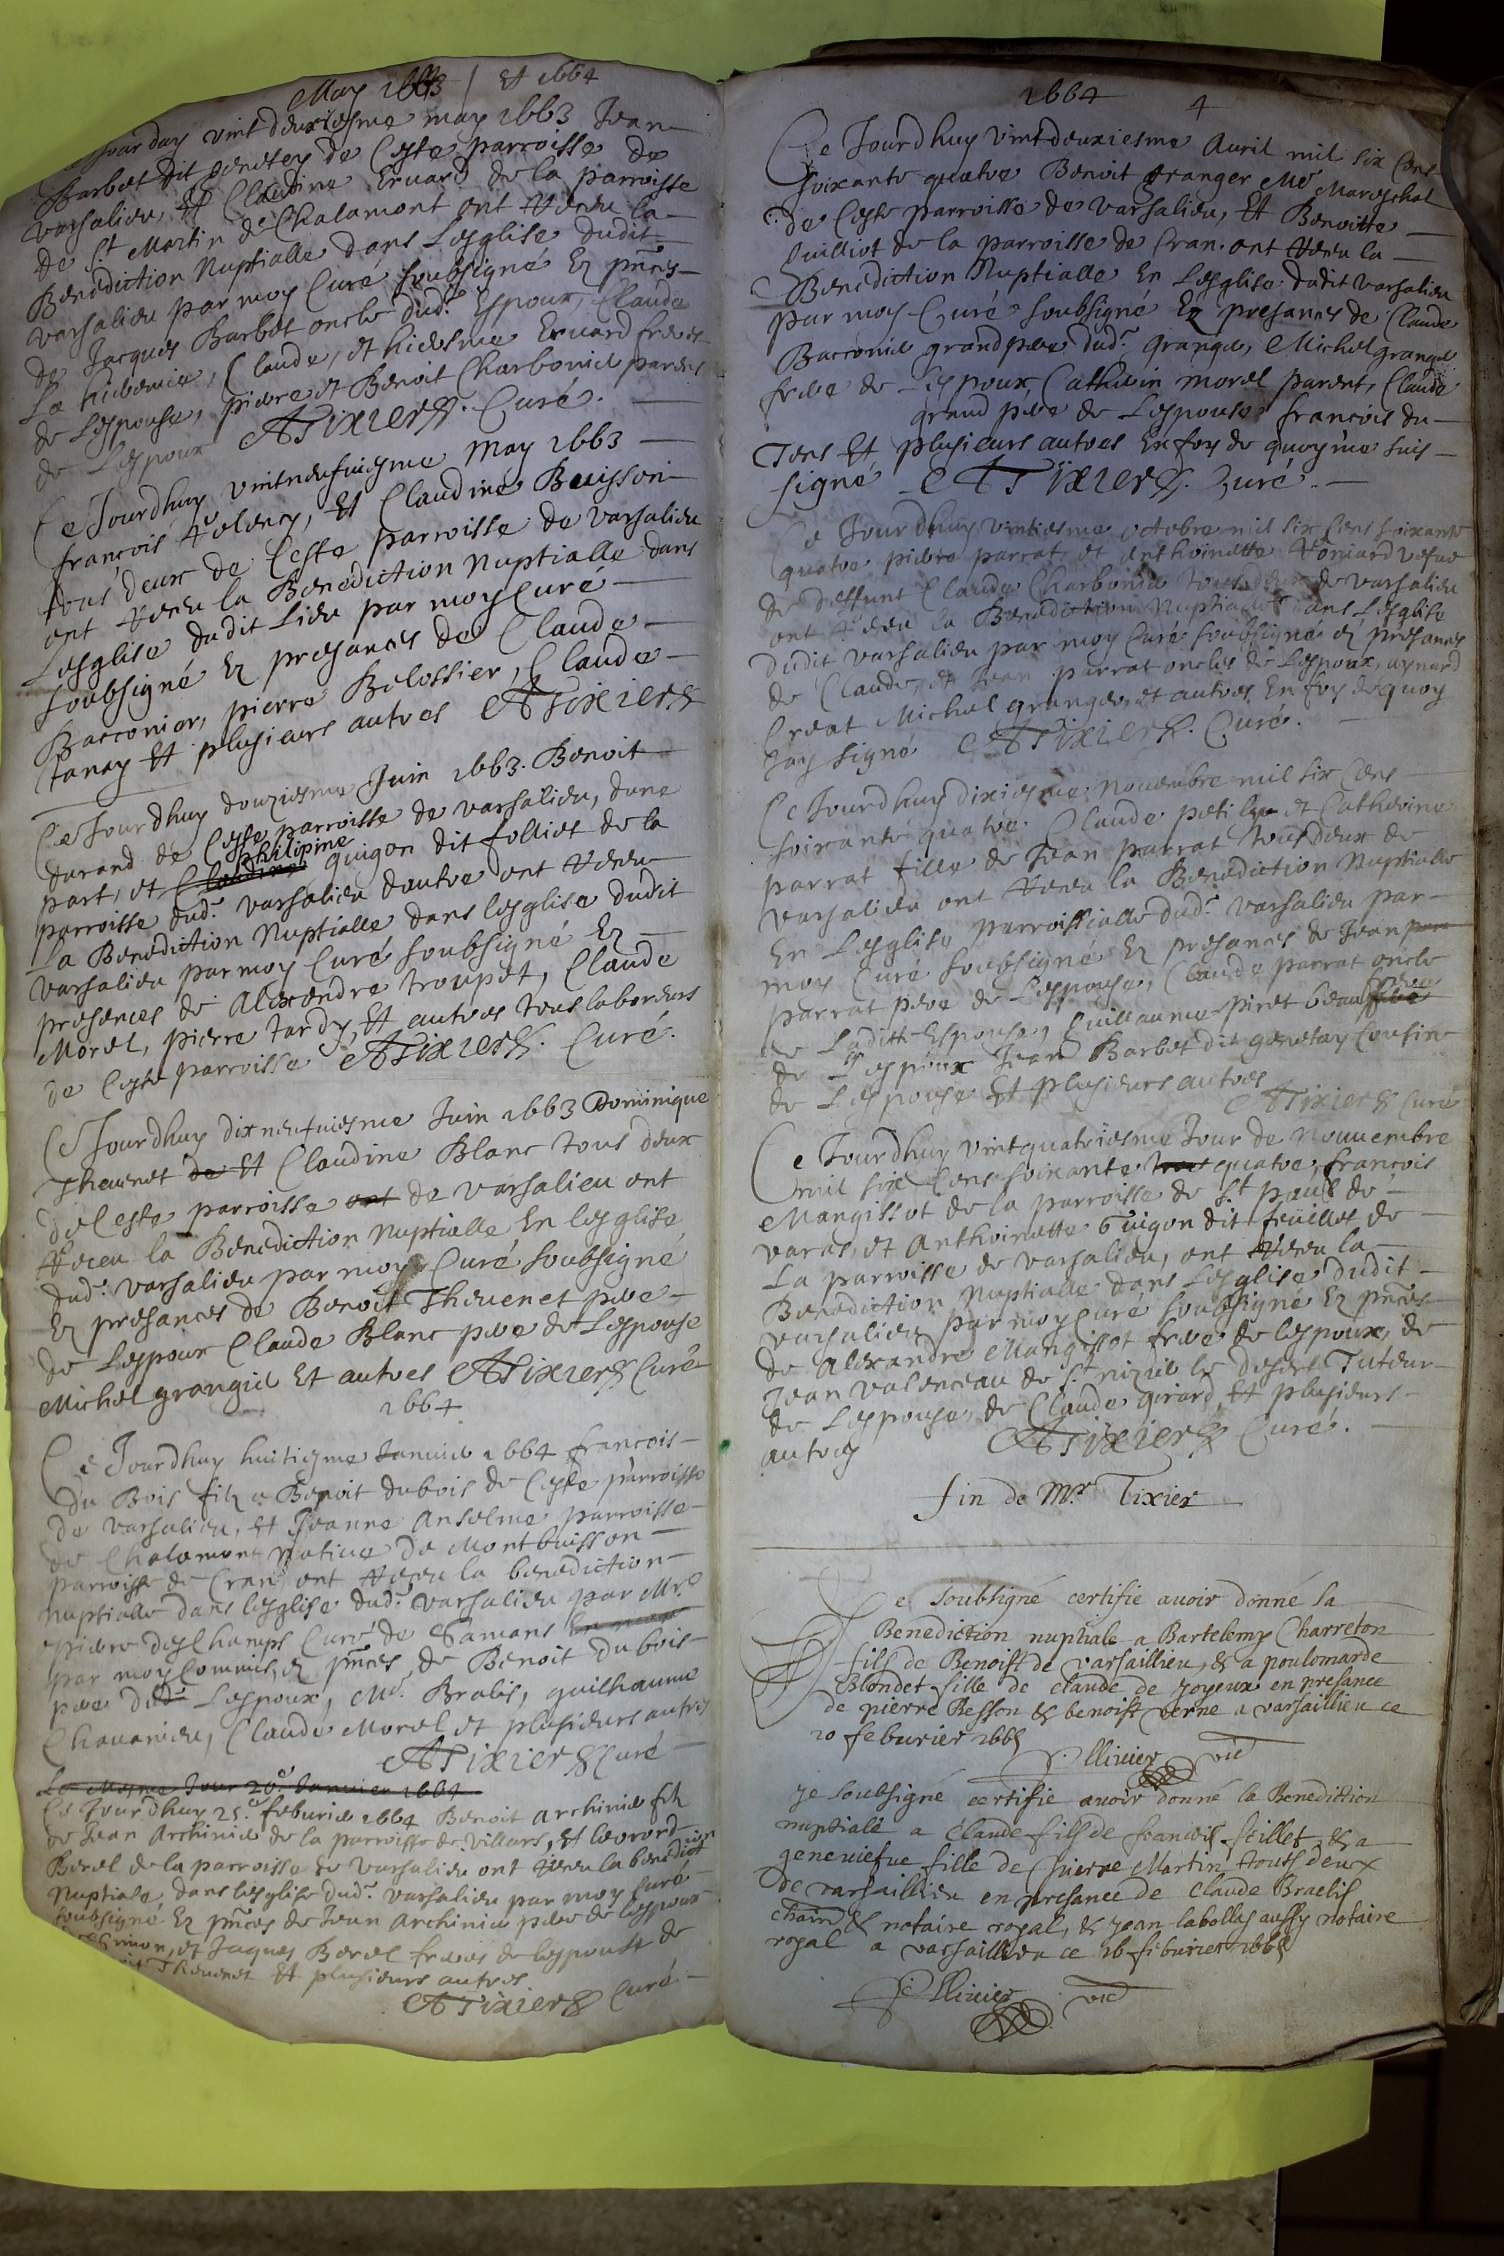 May 1663 / Et 1664
Jourduy vint deuxiesme may 1663 Jean
Barbet dit genetey de Ceste parroisse de
varsalieu, Et Claudine Eruard de la parroisse
de St Martin de Chalamont ont Receu la
Benediction Nuptialle dans Lesglise dudit
varsalieu par moy Curé soubsigné En pnces
de Jacques Barbet oncle dud. Espoux, Claude
La Claude, et Eruard freres
de Lespouse, pierre et Benoit Charbonier parens
de Lespoux ATixier Curé.
Ce Jourdhuy vintneufuiesme May 1663
françois Et Claudine Buisson
tous deux de Ceste parroisse de varsalieu
ont Receu la Benediction Nuptialle dans
Lesglise dudit Lieu par moy Curé
soubsigné En presances de Claude
Bacconier, pierre Belossier, Claude
Janay Et plusieurs autres ATixier
Ce Jourdhuy douziesme Juin 1663. Benoit
durand de Ceste parroisse de varsalieu, dune
philipine
part, et Claudine guigon dit folliet de la
parroisse dud. varsalieu dautre ont Receu
La Benediction Nuptialle dans lesglise dudit
varsalieu par moy Curé soubsigné En
presences de Alexendre troupet, Claude
Morel, pierre tardy, Et autres tous laboreurs
de Ceste parroisse ATixier. Curé.
Ce Jourdhuy dix neufuiesme Juin 1663 Dominique
Theuenet de Et Claudine Blanc tous deux
de Ceste parroisse ont de varsalieu ont
Receu la Benediction Nuptialle En lesglise
dud. varsalieu par moy Curé soubsigné
En presances de Benoit Theuenet pere
de Lespoux Claude Blanc pere de Lespouse
Michel grangier Et autres ATixier Curé
1664
Ce Jourdhuy huitiesme Januier 1664 francois
du Bois filz a Benoit dubois de Ceste parroisse
de varsalieu, Et Jeanne Anselme parroisse
de Chalamont natiue de Montbuisson
parroisse de Cran, ont Receu la benediction
nuptialle dans lesglise dud. varsalieu par Mre
pierre desChamps Curé de Samans
par moy Commis, En pnces de Benoit dubois
pere dudt Lespoux, Me. Bralis, guilhaume
Chauanieu, Claude Morel et plusieurs autres
ATixier Curé
Le Mesme Jour 20e Januier 1664
Ce Jourdhuy 25e feburier 1664 Benoit Archinier filz
de Jean Archinier de la parroisse de Villars, Et
Berel de la parroisse de varsalieu ont Receu la benediction
Nuptiale dans lesglise dud. varsalieu par moy Curé
soubsigné En pnces de Jean Archinier pere de lespoux
et Jaques Berel freres de lespouse de
Theuenet Et plusieurs autres
ATixier Curé
1664 4
Ce Jourdhuy vintdeuxiesme Auril mil six Cens
soixante quatre Benoit granger Me Mareschal
de Ceste parroisse de varsalieu, Et Benoitte
Guilliot de la parroisse de Cran. ont Receu la
Benediction Nuptialle En Lesglise dudit varsalieu
par moy Curé soubsigné En presances de Claude
Bacconier grandpere dud. grange, Michel grange
frere de Lespoux, Catherin morel parent, Claude
grand pere de Lespouse, francois du
Tens Et plusieurs autres En foy de quoy me suis
signé ATixier. Curé.
Ce Jourdhuy vintiesme octobre mil six Cens soixante
quatre pierre parrat, et Anthoinette vefue
de deffunt Claude Charbonier tous deux de varsalieu
ont Receu la Benediction Nuptialle dans Lesglise
dudit varsalieu par moy Curé soubsigné En presances
de Claude, et Jean parrat oncles de Lespoux, aynard
Creat Michel granger, et autres En foy de quoy
Jay signé ATixier. Curé.
Ce Jourdhuy dixiesme Nouembre mil six Cens
soixante quatre. Claude peti et Catherine
parrat fille de Jean parrat tous deux de
varsalieu ont Receu la Benediction Nuptialle
En Lesglise parroissialle dud. varsalieu par
moy Curé soubsigné En presances de Jean
parrat pere de Lespouse, Claude parrat oncle
de Laditte Espouse, Guillaume piret beau frere
de Lespoux Jean Barbet dit genetay Cousin
de Lespouse Et plusieurs autres
ATixier Curé
Ce Jourdhuy vintquatriesme Jour de Nouuembre
mil six Cens soixante quatre, francois
Mangissot de la parroisse de St paul de
varas, et Anthoinette Guigon dit feuillet de
La parroisse de varsalieu, ont Receu la
Benediction Nuptialle dans Lesglise dudit
varsalieu par moy Curé soubsigné En pnces
de Alexandre Mangissot frere de lespoux, de
Jean valenceau de St nizier le desert Tuteur
de Lespouse, de Claude girard, Et plusieurs
autres ATixier Curé.
fin de Mr. Tixier
Je soubsigné certifie auoir donné la
Benediction nuptiale a Bartelemy Charreton
fils de Benoist de varsaillieu, & a poulomarde
Blondet fille de claude de Joyeux en presance
de pierre Besson & benoist verne a varsaillieu ce
10 feburier 1665
Olliuier vic
Je soubsigné certifie auoir donné la Benediction
nuptiale a Claude fils de francois feillet & a
geneuiefue fille de pierre Martin touts deux
de varsaillieu en presance de claude Braelis
& notaire royal, & Jean labollas aussy notaire
royal a varsaillieu ce 16 feburier 1665
Olliuier vic